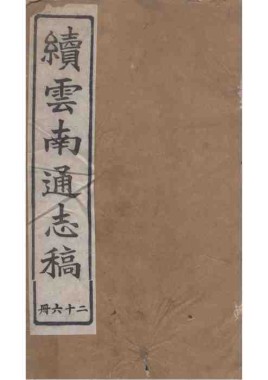 續雲南通志稿
二十六冊